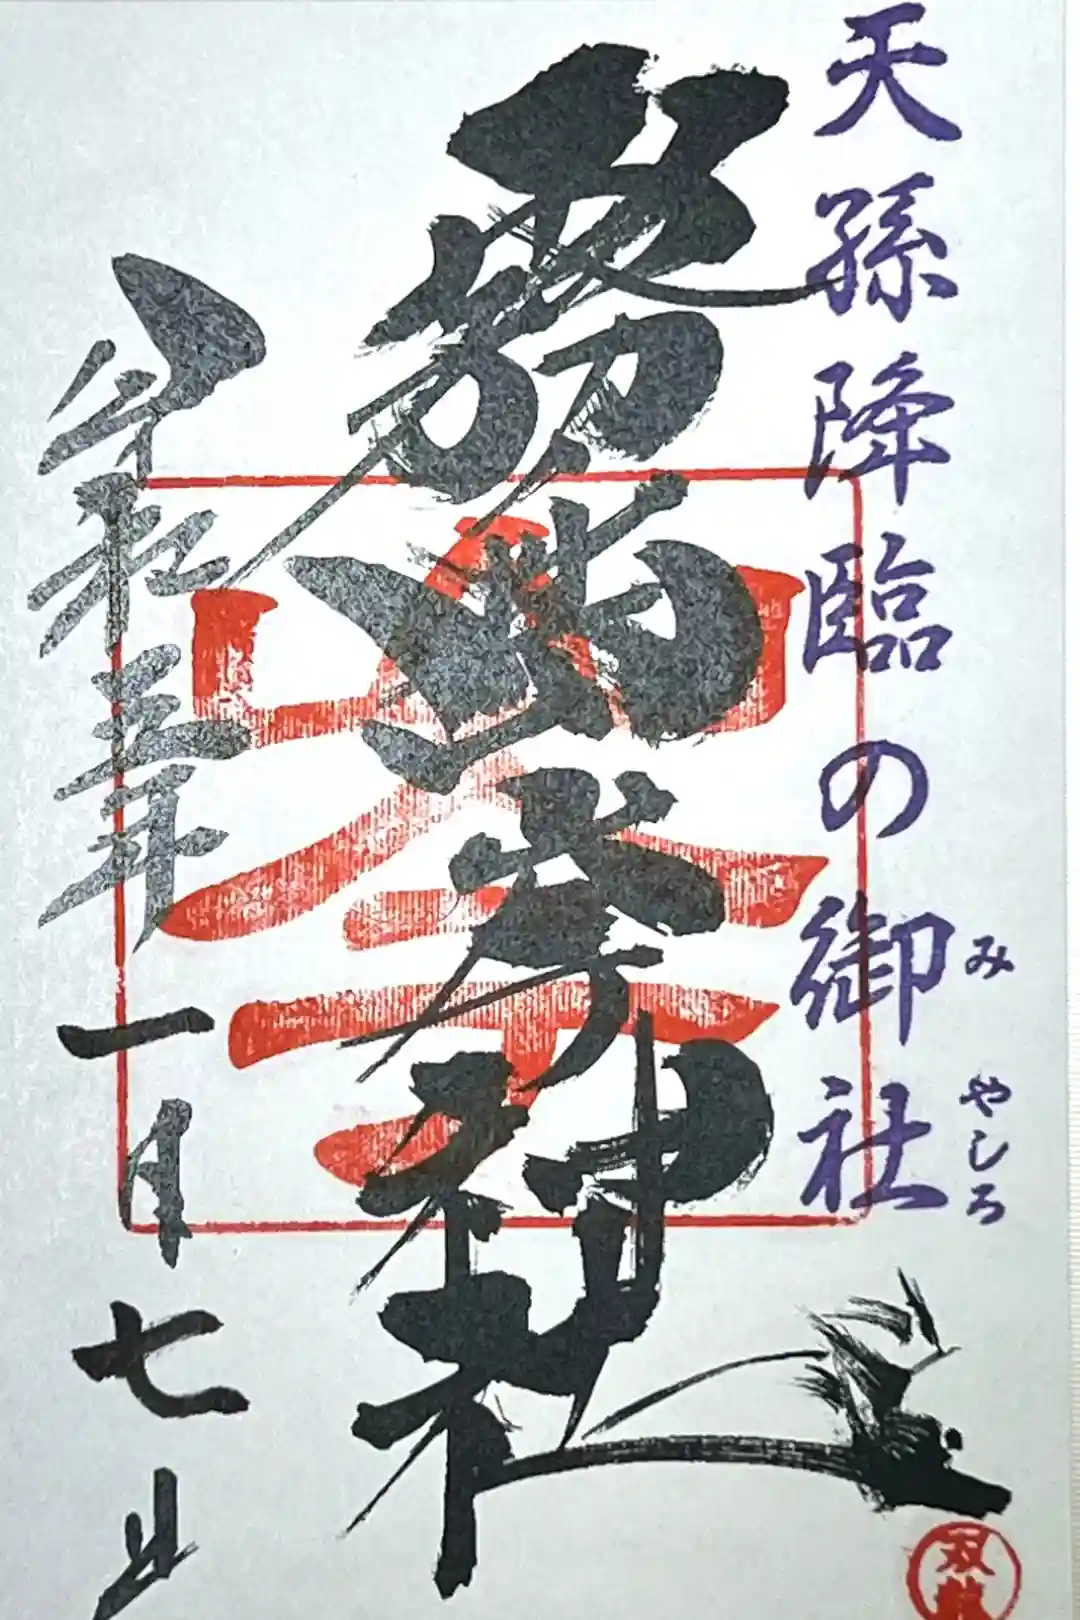 天孫降臨の御社
みやしろ
霧島岑神社
岑
令和五年一月七日
双龍